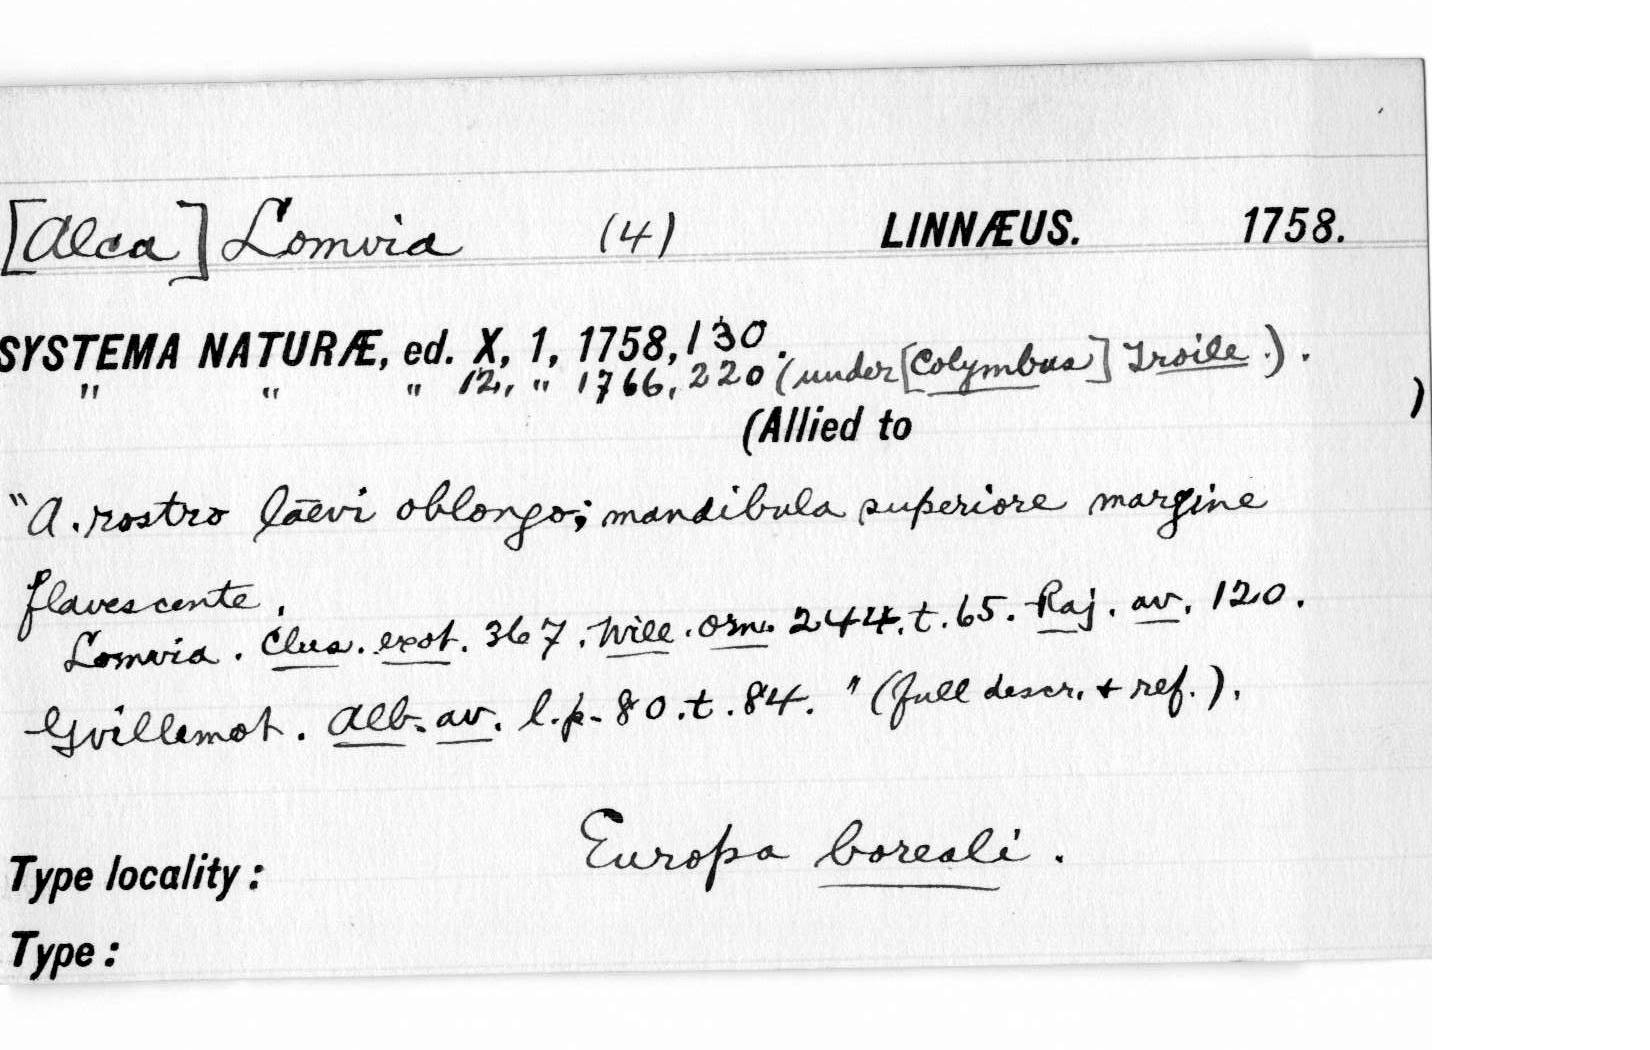 [Alca] Lomvia (4) LINNÆUS. 1758.
SYSTEMA NATURÆ, ed. X, 1, 1758, 130.
" " " 12, " 1766, 220 (under [Colymbus] Troile.).
(Allied to )
"A. rostro lāevi oblongo; mandibula superiore margine
flavescente.
Lomvia. Clus. exot. 367. Will. orn. 244. t. 65. Raj. av. 120.
Gvillemot. Alb. av. l. p. 80. t. 84." (full descr. + ref.).
Type locality: Europa boreali.
Type: